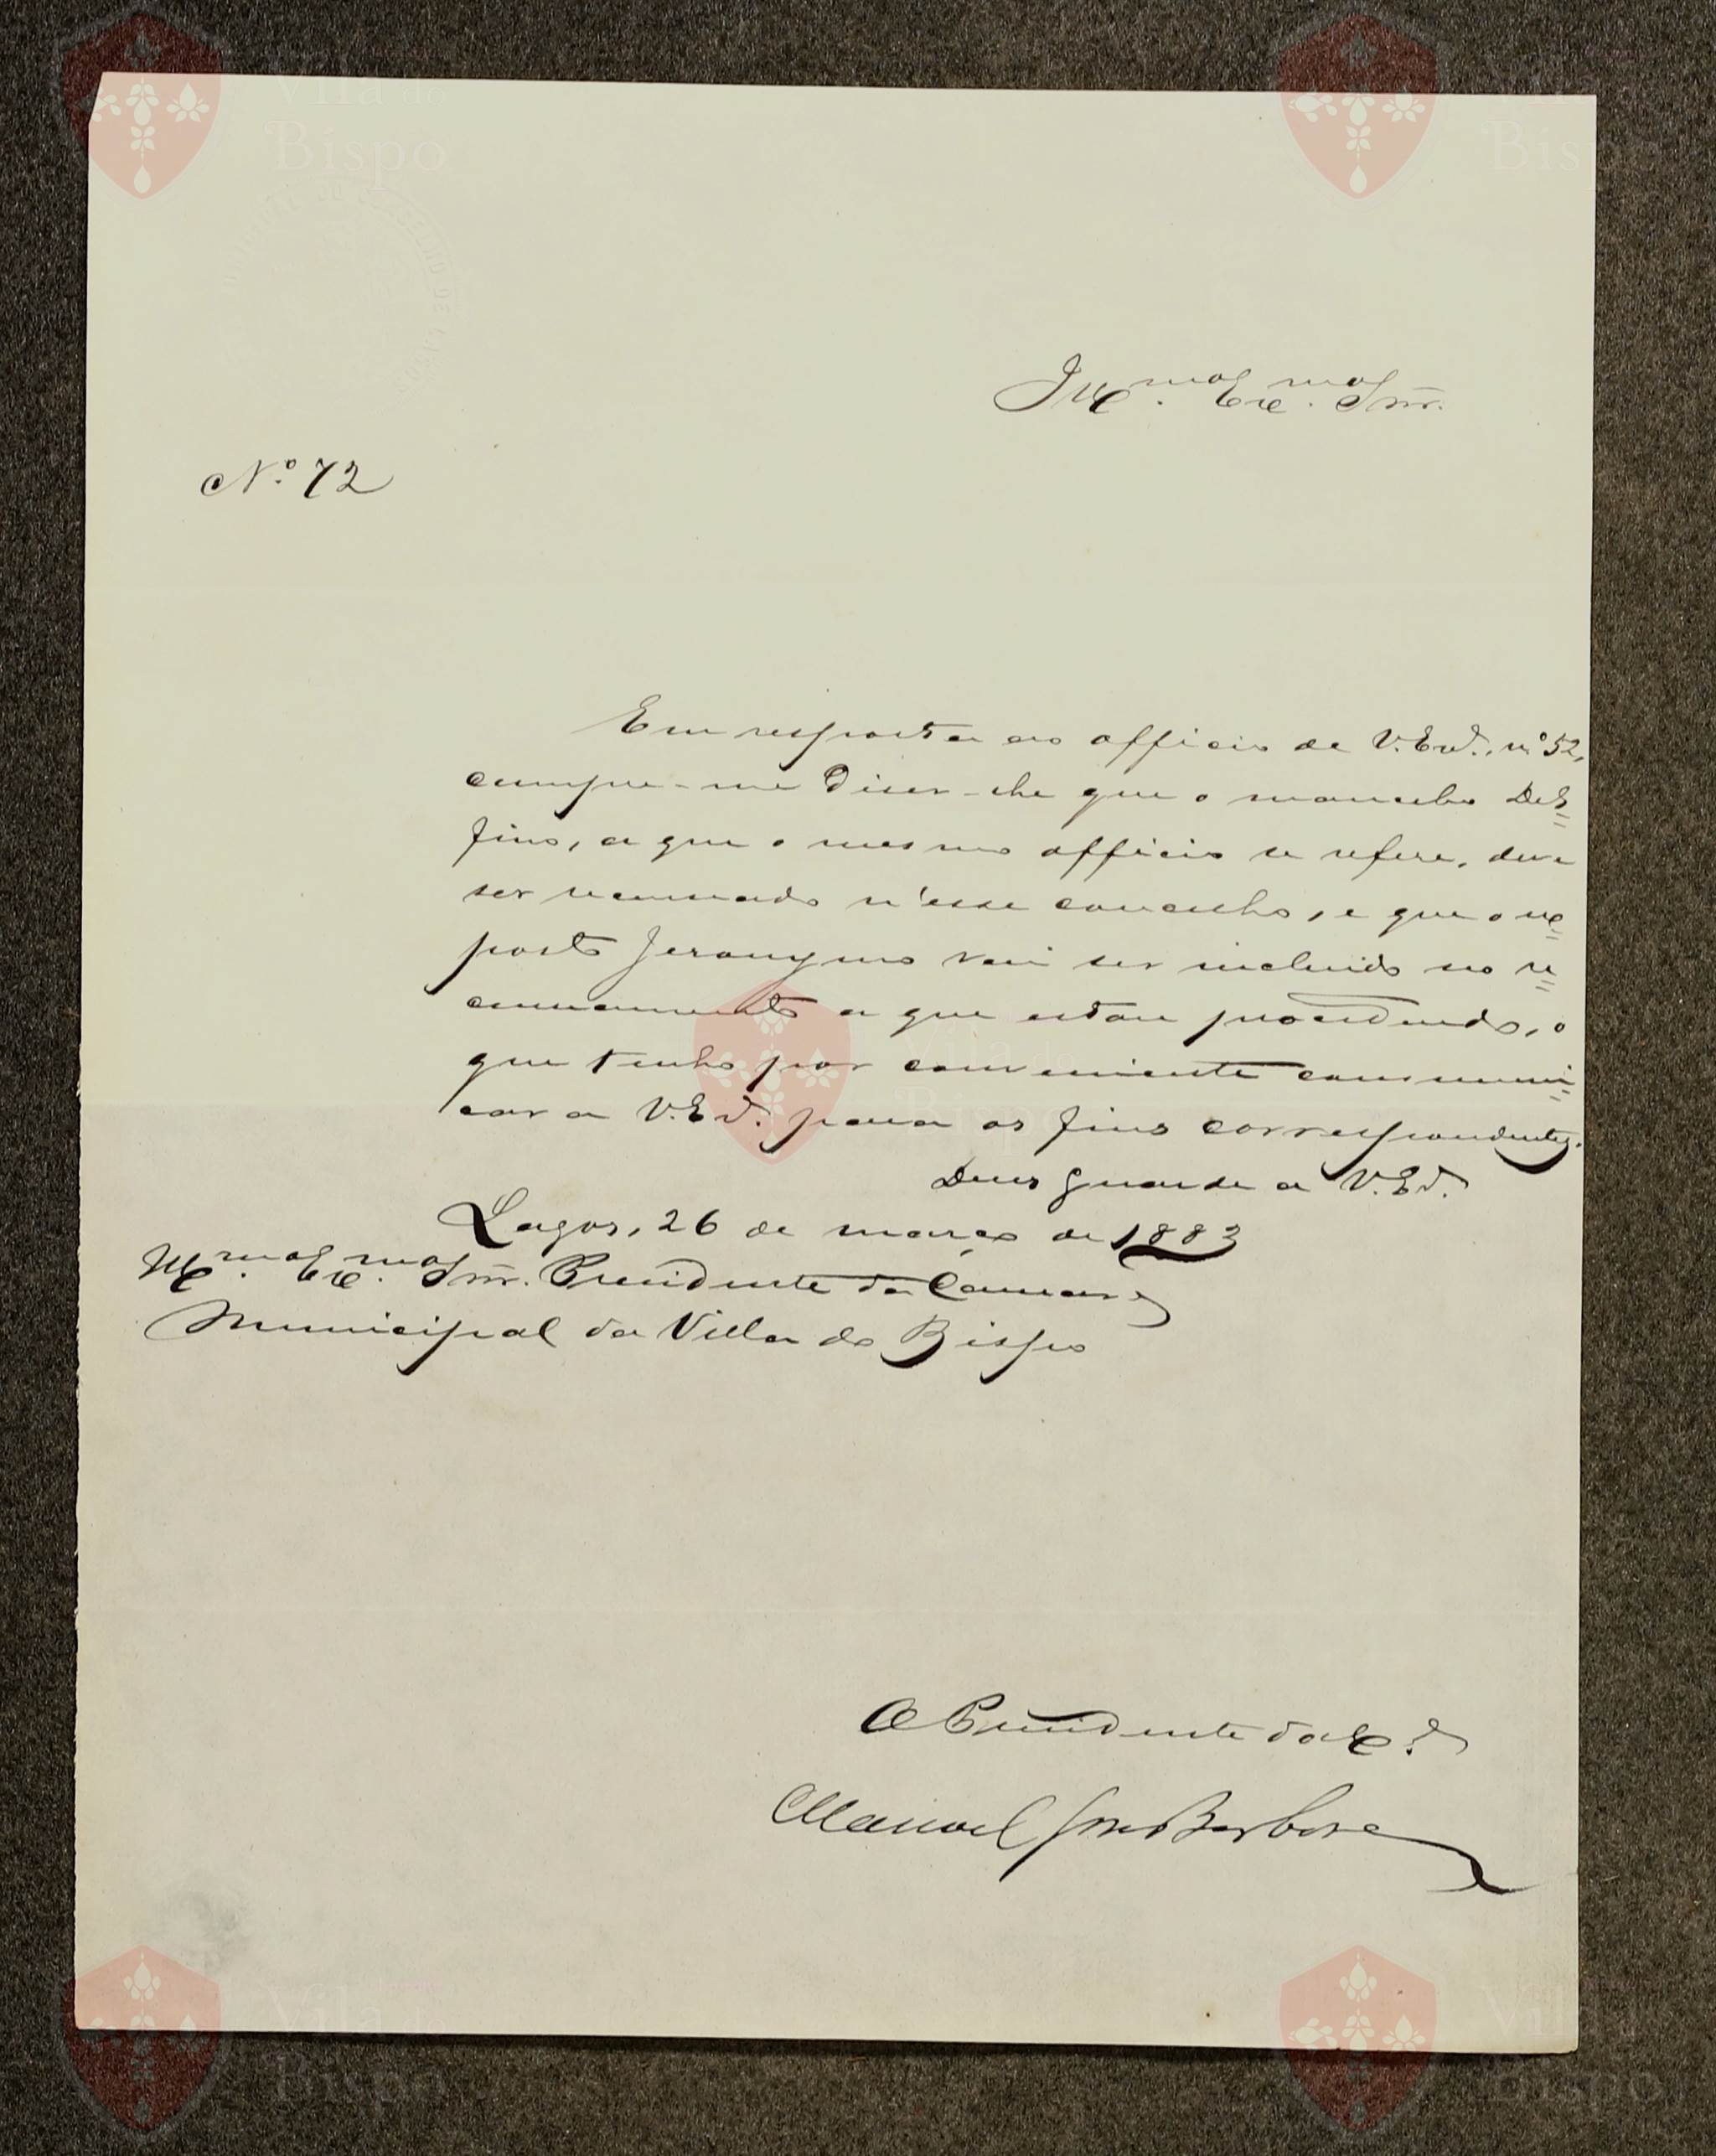 Ill.mo e Ex.mo Snr.
N.º 72
Em resposta ao officio de V. Ex.ª, n.º 52,
cumpre-me dizer-lhe que o mancebo Del=
fino, a que o mesmo officio se refere, deve
ser recenseado n'esse concelho, e que o ex=
posto Jeronymo vai ser incluido no re=
censeamento a que estou procedendo, o
que tenho por conveniente communi=
car a V. Ex.ª para os fins correspondentes.
Deus Guarde a V. Ex.ª
Lagos, 26 de março de 1883
Ill.mo e Ex.mo Snr. Presidente da Camara
Municipal da Villa do Bispo
O Presidente da C.ª
Manoel José Barbosa
Vila do
Bispo